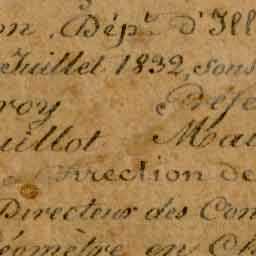 on, Dép.t D'Ill
Juillet 1832, sous
roy Préfe
uillot Mai
Direction de
Directeur des Con
Géomètre en Ch